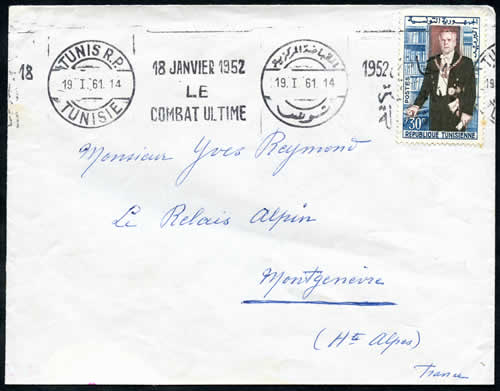 18
TUNIS R.P.
19. I. 61. 14
TUNISIE
18 JANVIER 1952
LE
COMBAT ULTIME
القباضة المركزية
19. I. 61. 14
تونس
1952
الجمهورية التونسية
POSTES
30
REPUBLIQUE TUNISIENNE
Monsieur Yves Reymond
Le Relais Alpin
Montgenèvre
(Htes Alpes)
France